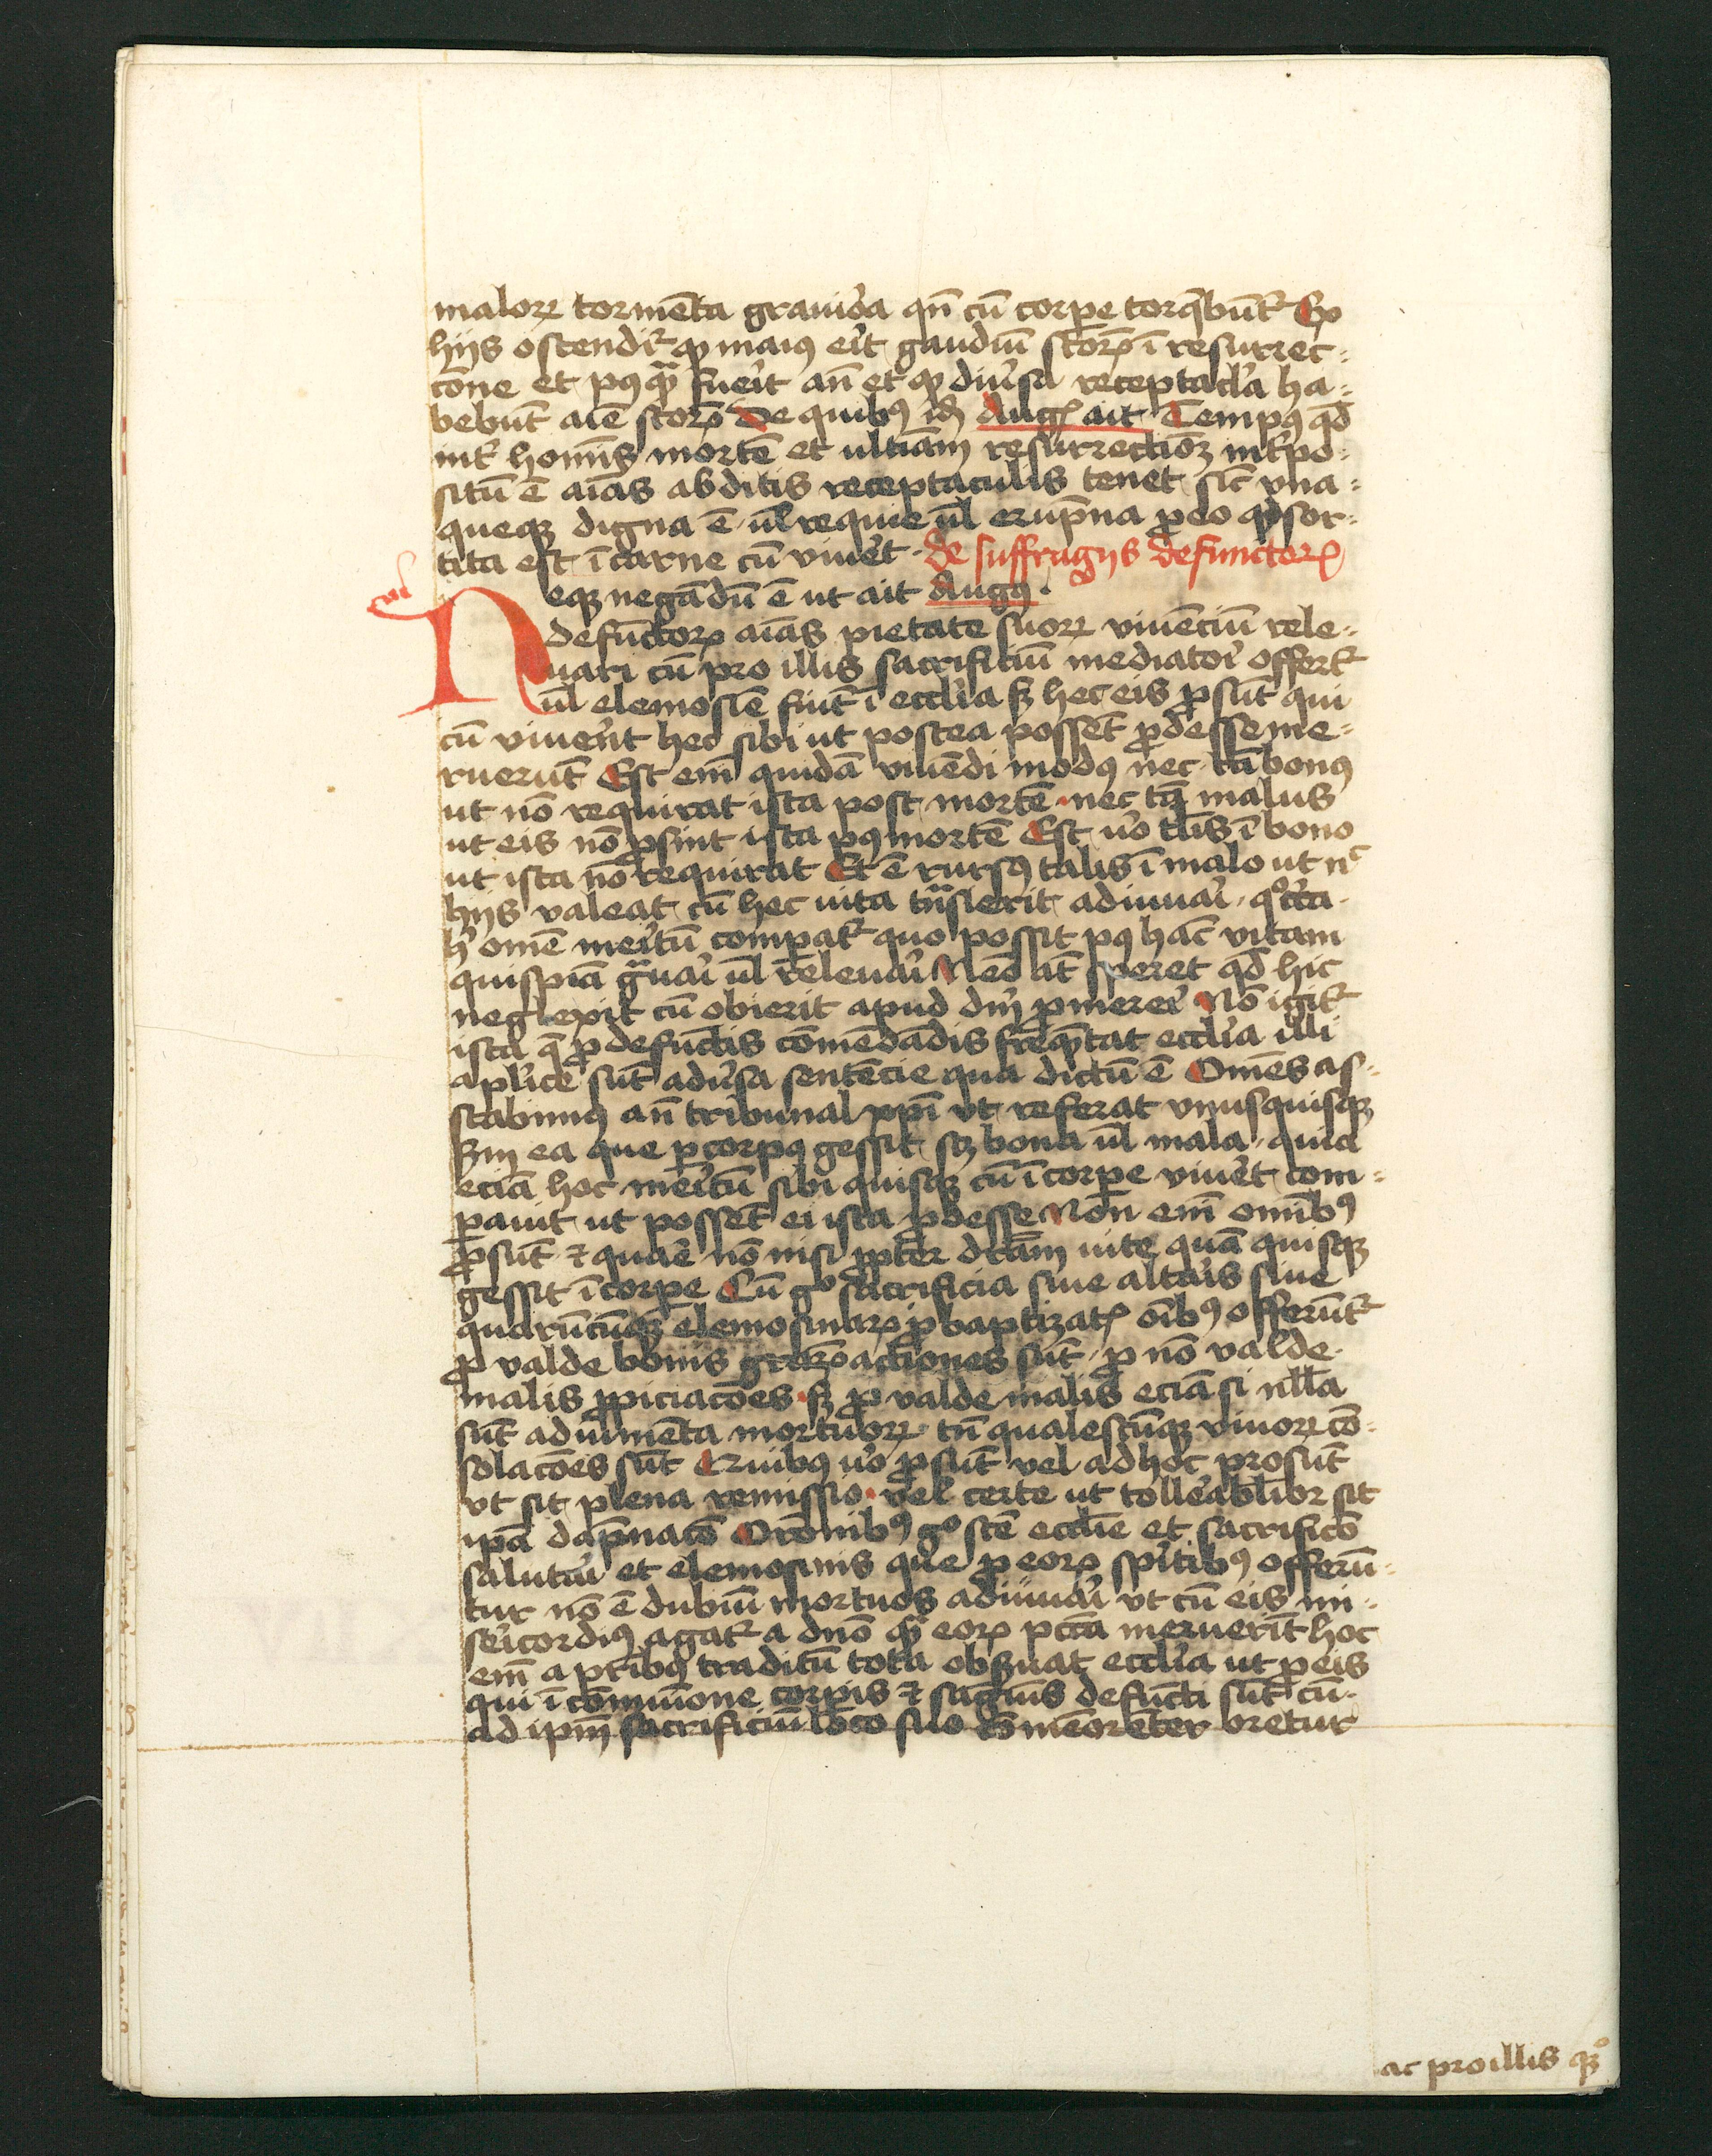 maloꝝ tormēta grauiᷣoa qn̄ cū corpe torq̄būt᷑ Ex
hijs ostendit᷑ ꝙ maiꝰ eīt gaudiū sc̄oꝝ ī resurrec-
cōne et pꝰqᷓ fueīt an̄ et ꝙ diuˀsa receptacl̄a ha-
bebūt aīe sc̄oꝝ De quibꝰ id̄ Augꝰ ait Tempꝰ qd̄
int᷑ homīs mortē et ultīam resurrectiōꝫ int᷑po-
situ ē aīas abditis receptaculis tenet sic̄ vna-
queqꝫ digna ē ul̄ requie ul̄ erūpna ꝓ eo qd̄ sor-
tita est ī carne cū viuēt · de suffragijs defunctoꝝ
Neqꝫ negādū ē ut ait Augꝰ ·
defūctoꝝ aīas pietate suoꝝ viuēciū rele-
uari cū pro illis sacrificiū mediatoī offert᷑
ul̄ elemosīe fiūt ī eccl̄ia sꝫ hec eis ꝓsūt qui
cū viueīnt hec sibi ut postea possēt ꝓdesse me-
ruerūt Est em̄ quidā viuēdi modꝰ nec tā bonꝰ
ut nō requirat ista post mortē · nec tā malus
ut eis nō ꝓsint ista pꝰ mortē Est u̇o tl̄is ī bono
ut ista nō requirat Et ē rursꝰ talis ī malo ut nᶜ
hijs valeat cū hec uita tᷓnsierit adiuuaī · qᵒcīta
hᶜ omē meītū compat᷑ quo possit pꝰ hāc vitam
quispiā gᷓuaī ul̄ releuaī Neō at̄ speret qd̄ hic
neglexit cū obierit apud dm̄ ꝓmereī Nō igit᷑
ista q̄ ꝓ defūctis cōmēdādis freqᷓtat eccl̄ia illi
apl̄ice sūt aduˀsa sentēcie qua dictū ē Om̄es as-
stabimꝰ an̄ tribunal xp̄i ut referat vnusquisqꝫ
scdm̄ ea que ꝑ corpꝰ gessit sꝫ bona ul̄ mala · quia
eciā hoc meītū sibi quisqꝫ cū ī corpe viuēt com-
ꝑauit ut possēt ei ista ꝓdesse Non em̄ omībꝰ
ꝓsūt ⁊ quaē nō nisi ꝓpter dr̄am uite quā quisqꝫ
gessit ī corpe Cū gᵒ sacrificia siue altaīs siue
quarūcūqꝫ elemosinaꝝ ꝓ baptizatꝭ oībꝰ offerūt᷑
ꝓ valde bonis gr̄aꝝ actiones sūt · ꝓ nō valde
malis ꝓpiciacōes · sꝫ ꝓ valde malis eciā si nll̄a
sūt adiumēta mortuoꝝ · tn̄ qualescūqꝫ viuoꝝ cō-
solacōes sūt Quibꝰ u̇o ꝓsūt vel ad hoc prosūt
vt sit plena remissio · vel certe ut tollēabl̄ior sit
ip̄a dāpnacō Orōnibꝰ gᵒ sc̄e eccl̄ie et sacrificō
salutaī et elemosinis que ꝓ eoꝝ spīitibꝰ offerū-
tur nō ē dubiū mortuos adiuuaī vt cū eis mi-
seīcordiꝰ agat᷑ a dn̄o qᷓ eoꝝ pcc̄a meruerīt hoc
em̄ a pr̄ibꝰ traditū tota obsˀuat eccl̄ia ut ꝓ eis
qui ī cōmuīone corpīs ⁊ sāguīs defūcti sūt cū
ad ipm̄ sacrificiū loco suo cōmēorēter oretur
ac pro illis qꝫᵒ